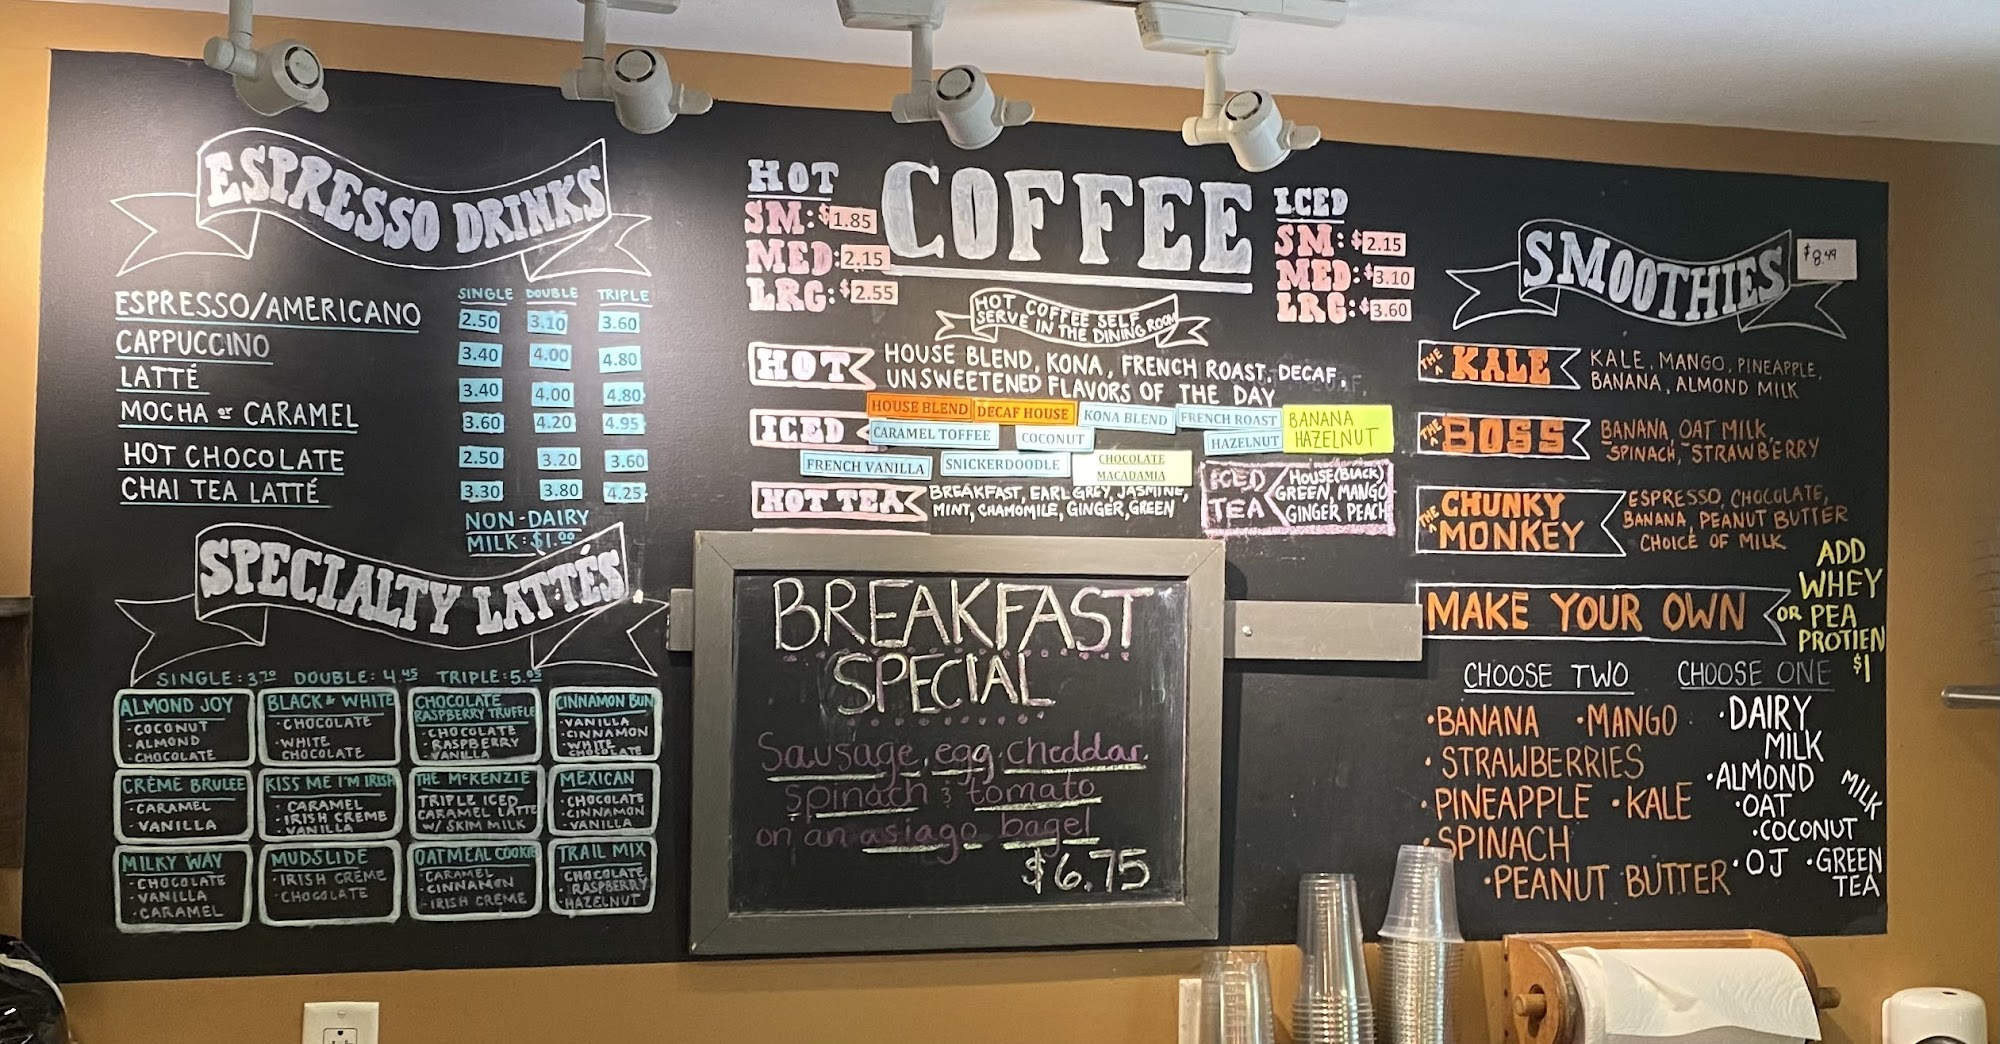 ESPRESSO DRINKS
SINGLE DOUBLE TRIPLE
ESPRESSO/AMERICANO 2.50 3.10 3.60
CAPPUCCINO 3.40 4.00 4.80
LATTÉ 3.40 4.00 4.80
MOCHA or CARAMEL 3.60 4.20 4.95
HOT CHOCOLATE 2.50 3.20 3.60
CHAI TEA LATTÉ 3.30 3.80 4.25
NON-DAIRY
MILK: $1.00
SPECIALTY LATTÉS
SINGLE: 3.70 DOUBLE: 4.45 TRIPLE: 5.05
ALMOND JOY
·COCONUT
·ALMOND
·CHOCOLATE
BLACK & WHITE
·CHOCOLATE
·WHITE
CHOCOLATE
CHOCOLATE
RASPBERRY TRUFFLE
·CHOCOLATE
·RASPBERRY
VANILLA
CINNAMON BUN
·VANILLA
·CINNAMON
·WHITE
CHOCOLATE
CRÈME BRULEE
·CARAMEL
·VANILLA
KISS ME I'M IRISH
·CARAMEL
·IRISH CREME
·VANILLA
THE McKENZIE
TRIPLE ICED
CARAMEL LATTE
W/ SKIM MILK
MEXICAN
·CHOCOLATE
·CINNAMON
·VANILLA
MILKY WAY
·CHOCOLATE
·VANILLA
·CARAMEL
MUDSLIDE
·IRISH CRÈME
·CHOCOLATE
OATMEAL COOKIE
·CARAMEL
·CINNAMON
·IRISH CREME
TRAIL MIX
CHOCOLATE
·RASPBERRY
·HAZELNUT
COFFEE
HOT
SM: $1.85
MED: 2.15
LRG: $2.55
ICED
SM: $2.15
MED: $3.10
LRG: $3.60
HOT COFFEE SELF
SERVE IN THE DINING ROOM
HOT
HOUSE BLEND, KONA, FRENCH ROAST, DECAF,
UNSWEETENED FLAVORS OF THE DAY
ICED
HOUSE BLEND DECAF HOUSE KONA BLEND FRENCH ROAST BANANA
HAZELNUT
CARAMEL TOFFEE COCONUT HAZELNUT
FRENCH VANILLA SNICKERDOODLE CHOCOLATE
MACADAMIA
HOT TEA
BREAKFAST, EARL GREY, JASMINE,
MINT, CHAMOMILE, GINGER, GREEN
ICED
TEA
HOUSE (BLACK)
GREEN, MANGO
GINGER PEACH
BREAKFAST
SPECIAL
Sausage, egg, cheddar,
spinach & tomato
on an asiago bagel
$6.75
SMOOTHIES $8.49
THE KALE
KALE, MANGO, PINEAPPLE,
BANANA, ALMOND MILK
THE BOSS
BANANA, OAT MILK,
SPINACH, STRAWBERRY
THE CHUNKY
MONKEY
ESPRESSO, CHOCOLATE,
BANANA, PEANUT BUTTER
CHOICE OF MILK
MAKE YOUR OWN
ADD
WHEY
OR PEA
PROTIEN
$1
CHOOSE TWO
·BANANA ·MANGO
·STRAWBERRIES
·PINEAPPLE ·KALE
·SPINACH
·PEANUT BUTTER
CHOOSE ONE
·DAIRY
MILK
·ALMOND MILK
·OAT
·COCONUT
·OJ ·GREEN
TEA